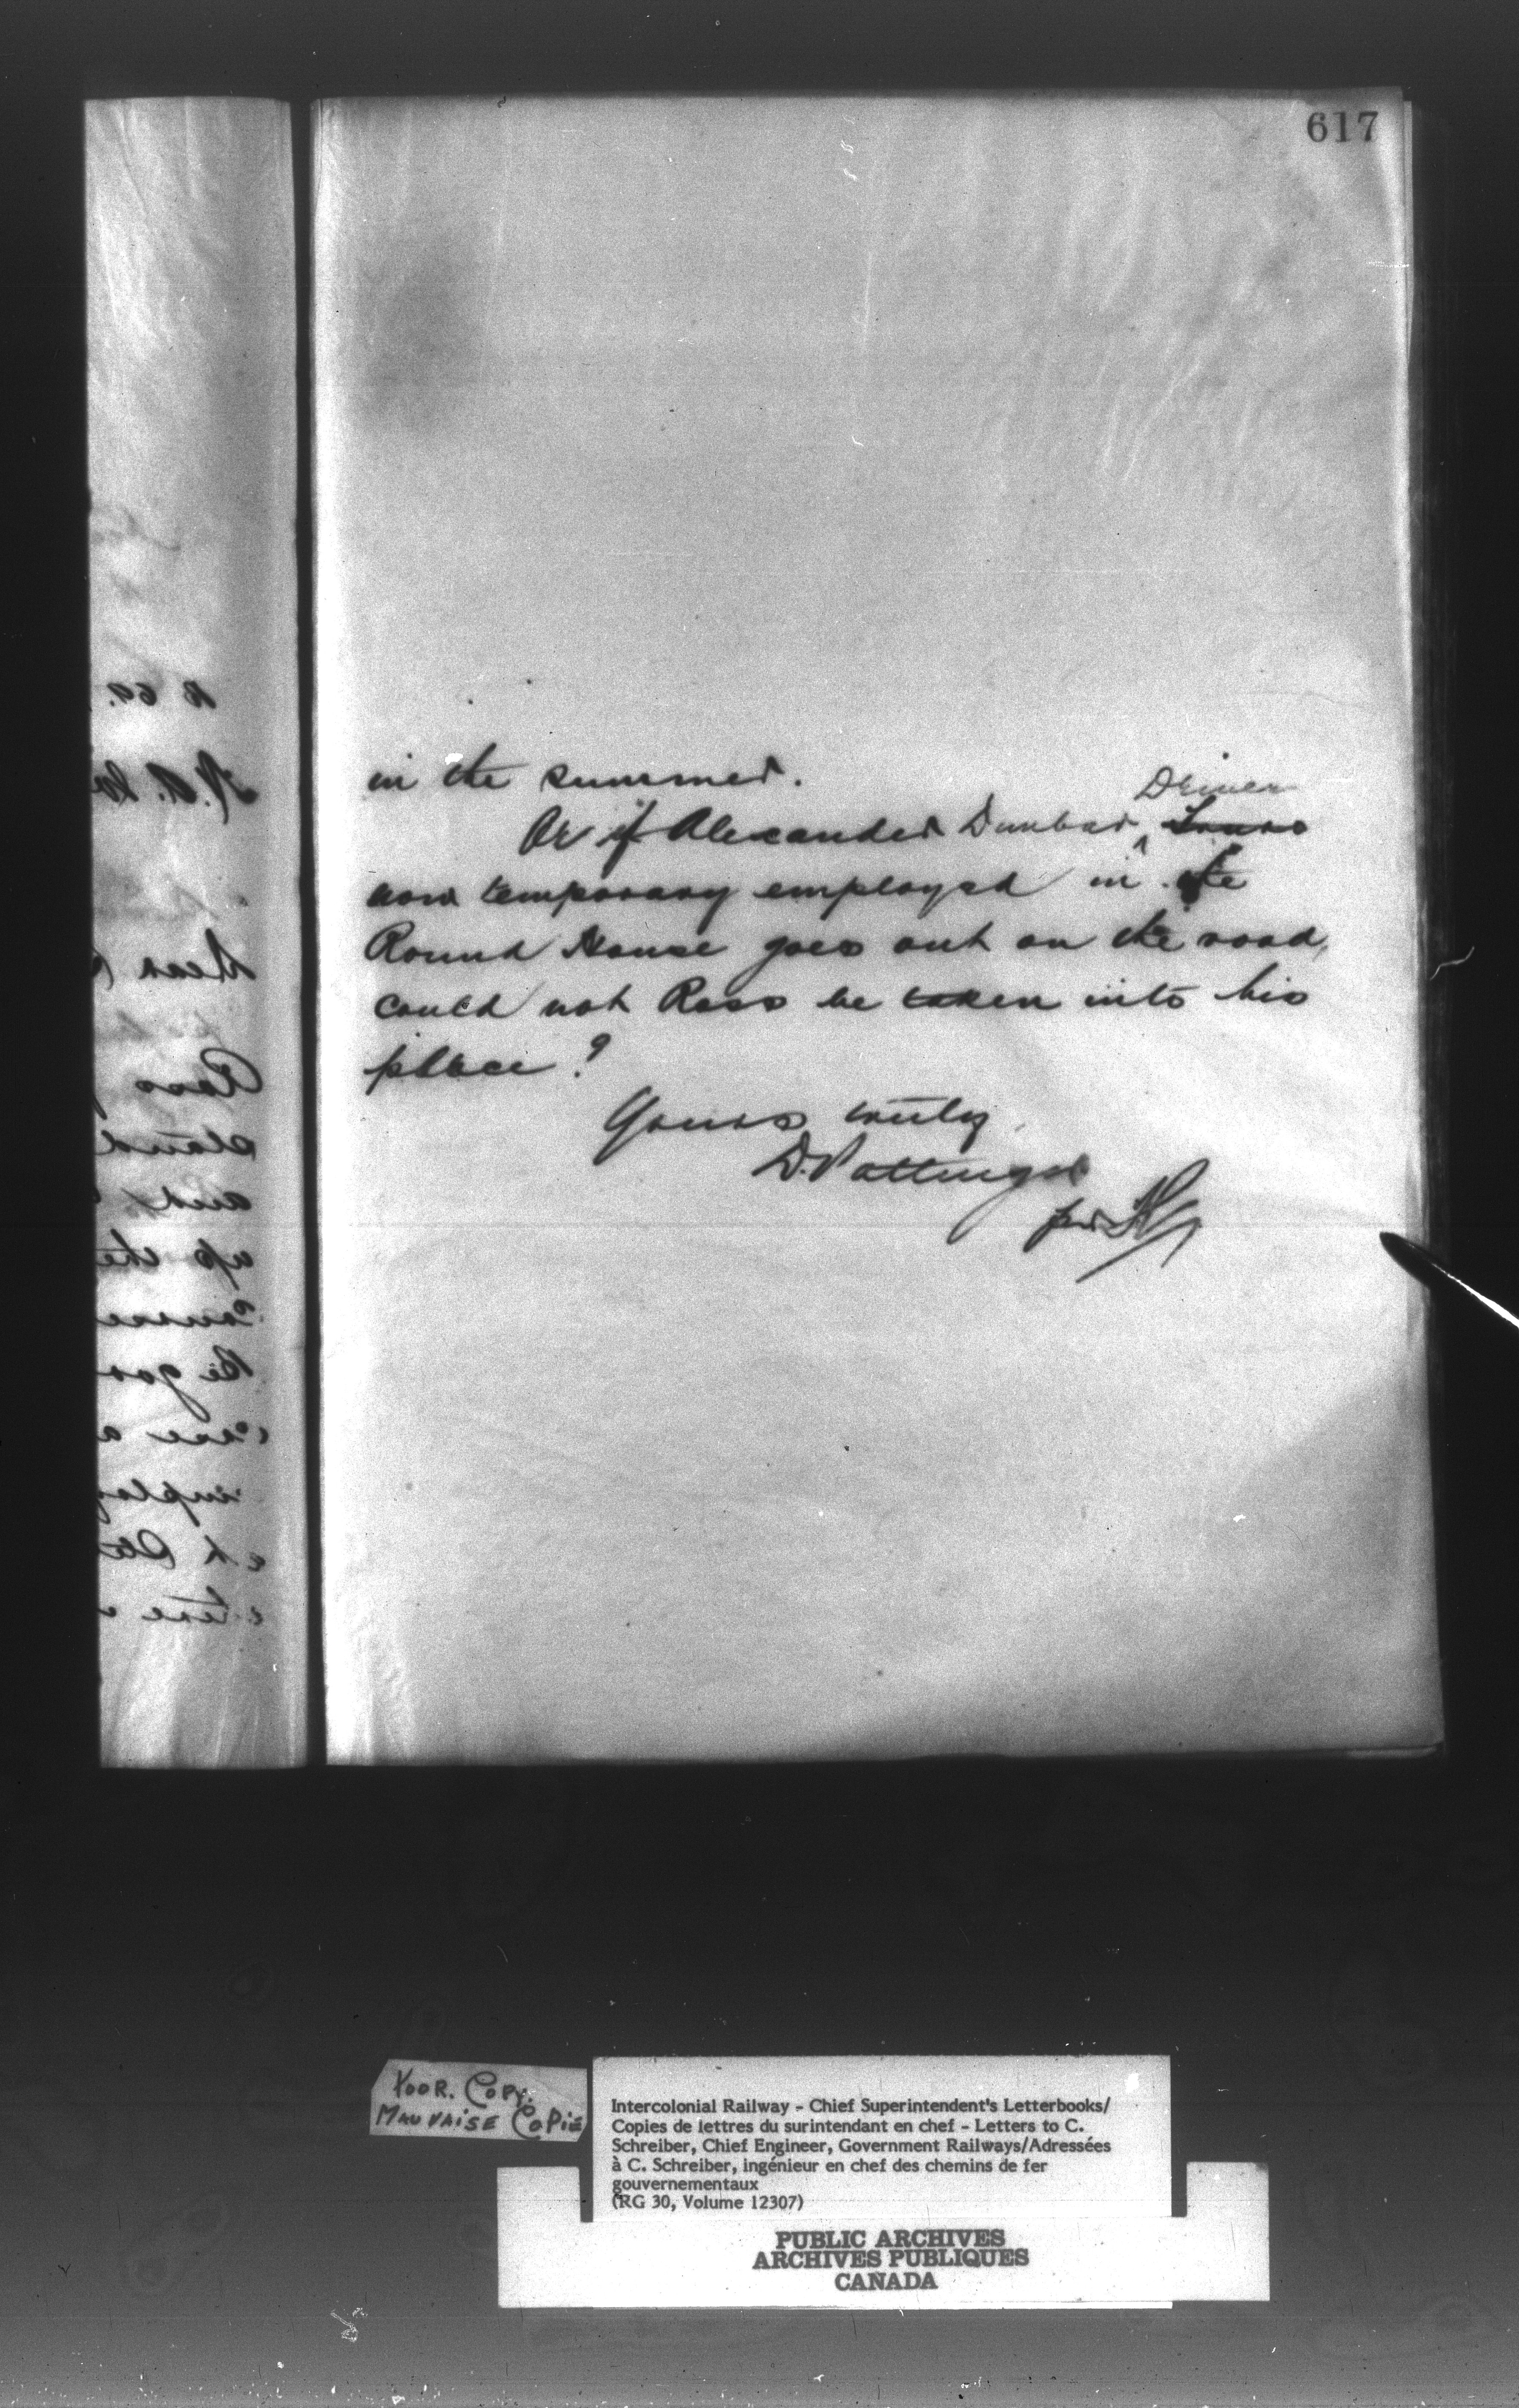 617
in the summer.
Driver
Or if Alexander Dunbar,
now temporary employed in the
Round House goes out on the road,
could not Ross be taken into his
place?
Yours truly,
D. Pottinger
per
POOR. COPY.
MAUVAISE COPIE
Intercolonial Railway - Chief Superintendent's Letterbooks/
Copies de lettres du surintendant en chef - Letters to C.
Schreiber, Chief Engineer, Government Railways/Adressées
à C. Schreiber, ingénieur en chef des chemins de fer
gouvernementaux
(RG 30, Volume 12307)
PUBLIC ARCHIVES
ARCHIVES PUBLIQUES
CANADA